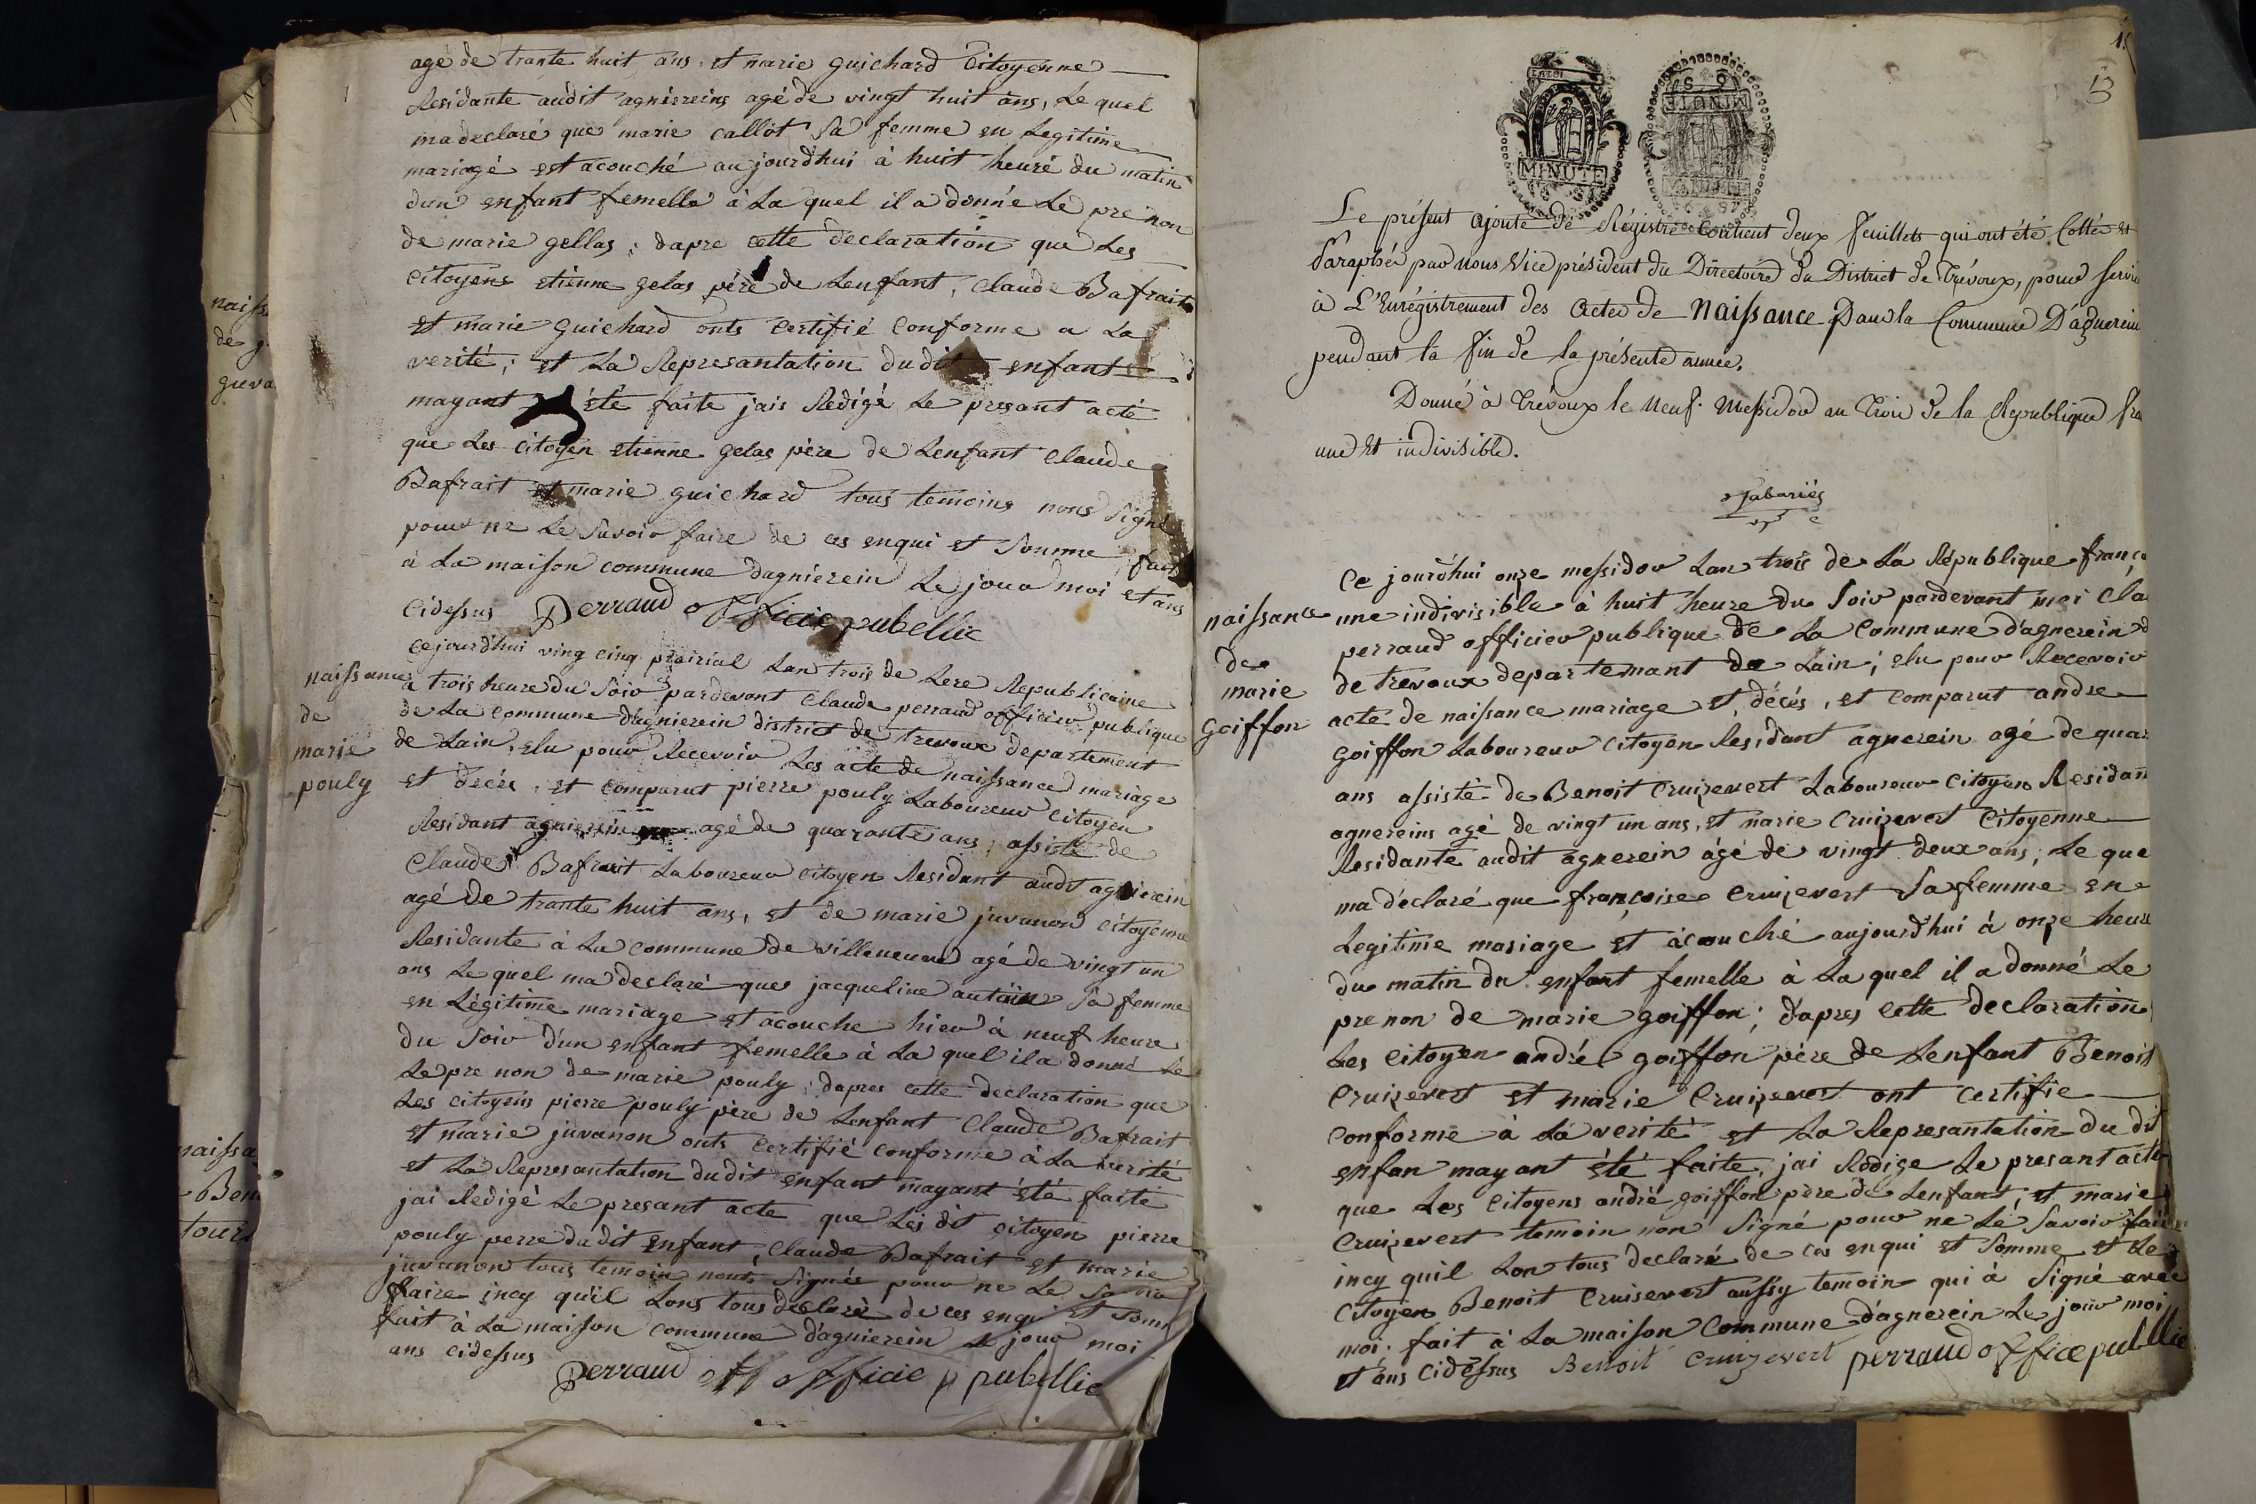 agé de trante huit ans, et marie guichard Citoyenne
Residante audit agniereins agé de vingt huit ans, Le quel
ma declaré que marie callot Sa femme en Legitime
mariagé est acouché aujourdhui à huit heuré du matin
dun enfant femelle à La quel il a donné Le pre non
de marie gellas ; dapre cette declaration que Les
citoyens etienne gelas péré de Lenfant, claude Bafrait
et marie guichard onts certifié conforme a La
verité ; et La Represantation dudit enfant
mayant été faite jais Redigé Le presant acté
que Les citoyen etienne gelas père de Lenfant claude
Bafrait et marie guichard tous temoins nons Signé
pour ne Le Savoir faire de ces enqui et Somme, fait
à La maison commune dagnierein Le jour moi et ans
cidessus Perraud officie pubellic
naissance
de
marie
pouly
cejourdhui ving cinq prairial Lan trois de Lere Republicaine
a trois heure du Soir pardevant claude perraud officier publique
de La commune dagnierein district de trevoux departement
de Lain, elu pour Recevoir Les acte de naissance mariage
et decés, et comparut pierre pouly Laboureur citoyen
Residant agnierein agé de quarante ans, assisté de
Claude Bafrait Laboureur citoyen Residant audit agnierein
agé de trante huit ans, et de marie juvanon citoyenne
Residante à La commune de villeneuve agé de vingt un
ans Le quel ma declaré que jacqueline Sa femme
en Légitime mariage et acouche hier à neuf heure
du Soir d'un enfant femelle à La quel il a donné Le
Le pre non de marie pouly ; dapres cette declaration que
Les citoyens pierre pouly père de Lenfant Claude Bafrait
et marie juvanon onts certifié conforme à La verité
et La Represantation dudit enfant mayant été faite
jai Redigé Le presant acte que Les dit citoyen pierre
pouly perre dudit enfant, Claude Bafrait et marie
juvanon tous temoin nont Signés pour ne Le
faire incy qu'il Lons tous declaré de ces enqui et Som
fait à La maison commune d'agnierein Le jour moi
ans cidessus Perraud officie pubellic
MINUTE
MINUTE
Le présent ajouté de Régistre Contient deux feuillets qui ont été Cottés et
Paraphés par nous Vice président du Directoire du District de Trévoux, pour servir
à L'Enrégistrement des Actes de Naissance Dans la Commune D'agnerein
pendant la fin de la présente année.
Donné à Trévoux le Neuf Messidor an Trois de la Republique fra
une et indivisible.
naissance
de
marie
goiffon
Ce jourdhui onze messidor Lan trois de La République frança
une indivisible à huit heure du Soir pardevant moi Cla
perraud officier publique de La Commune d'agnerein d
de trevoux departemant de Lain ; elu pour Recevoir
acté de naissance mariage et décés, et comparut andre
goiffon Laboureur citoyen Residant agnerein agé de quar
ans assisté de Benoit Cruizevert Laboureur Citoyen Residan
agnereins agé de vingt un ans, et marie Cruizevert Citoyenne
Residante audit agnerein âgé de vingt deux ans ; Le que
ma déclaré que françoise Cruizevert Sa femme en
Legitime mariage et àcouché aujourdhui à onze heure
du matin du enfant femelle à La quel il a donné Le
pre non de marie goiffon ; dapres cette declaration
Les citoyen andré goiffon père de Lenfant Benoit
Cruizevert et marie Cruizevert ont certifie
conforme à La verité et La Represantation du dit
enfan mayant été faite, jai Rédige Le presant acte
que Les Citoyens andré goiffon père de Lenfant, et marie
Cruizevert temoin non Signé pour ne Le Savoir fair
incy quil Lon tous declaré de ces enqui et Somme et Le
Citoyen Benoit Cruisevert aussy temoin qui à Signé avec
moi. fait à La maison Commune d'agnerein Le jour moi
et ans cidessus Benoit Cruizevert perraud office pubellic
naiss
de g